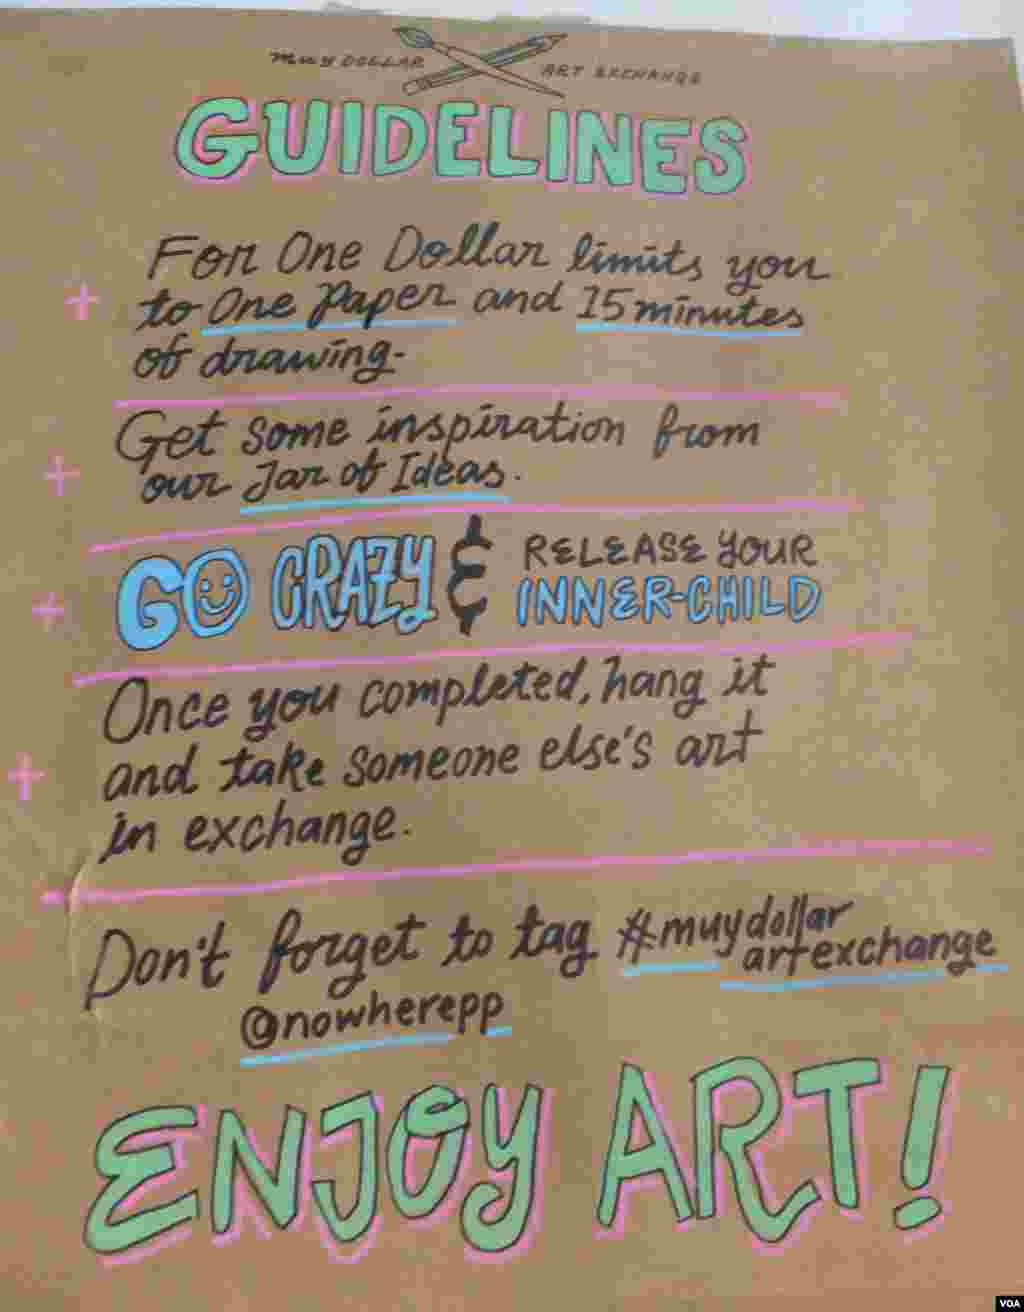 muy DOLLAR ART EXCHANGE
GUIDELINES
For One Dollar limits you
to One Paper and 15 minutes
of drawing.
Get some inspiration from
our Jar of Ideas.
GO CRAZY & RELEASE YOUR
INNER-CHILD
Once you completed, hang it
and take someone else's art
in exchange.
Don't forget to tag #muydollar
artexchange
@nowherepp
ENJOY ART!
VOA